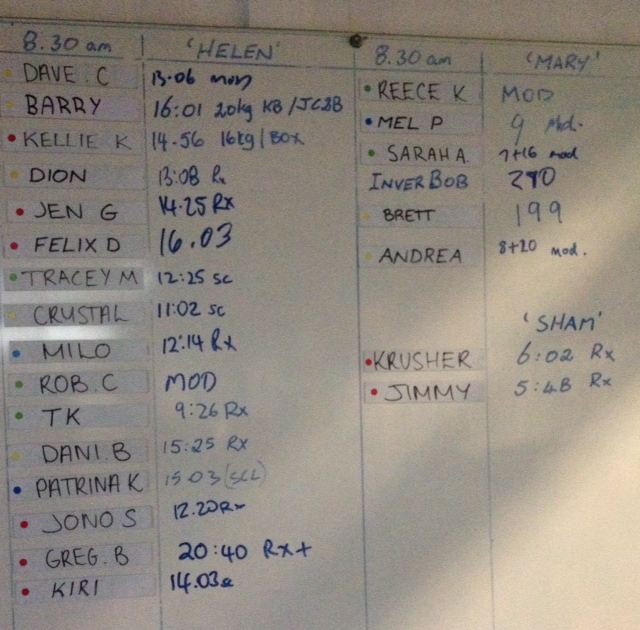 8.30 am 'HELEN'
DAVE. C 13.06 mod
BARRY 16:01 20kg KB /JC2B
KELLIE K 14.56 16kg/BOX
DION 13:08 Rx
JEN G 14.25 RX
FELIX D 16.03
TRACEY M 12:25 SC
CRYSTAL 11:02 SC
MILO 12:14 Rx
ROB. C MOD
TK 9:26 Rx
DANI. B 15:25 RX
PATRINA K 15 03 (SCL)
JONO S 12.20Rx
GREG. B 20:40 Rx+
KIRI 14.03
8.30 am 'MARY'
REECE K MOD
MEL P 9 Mod.
SARAH A. 7+16 mod
INVERBOB 270
BRETT 199
ANDREA 8+20 mod.
'SHAM'
KRUSHER 6:02 Rx
JIMMY 5:48 Rx